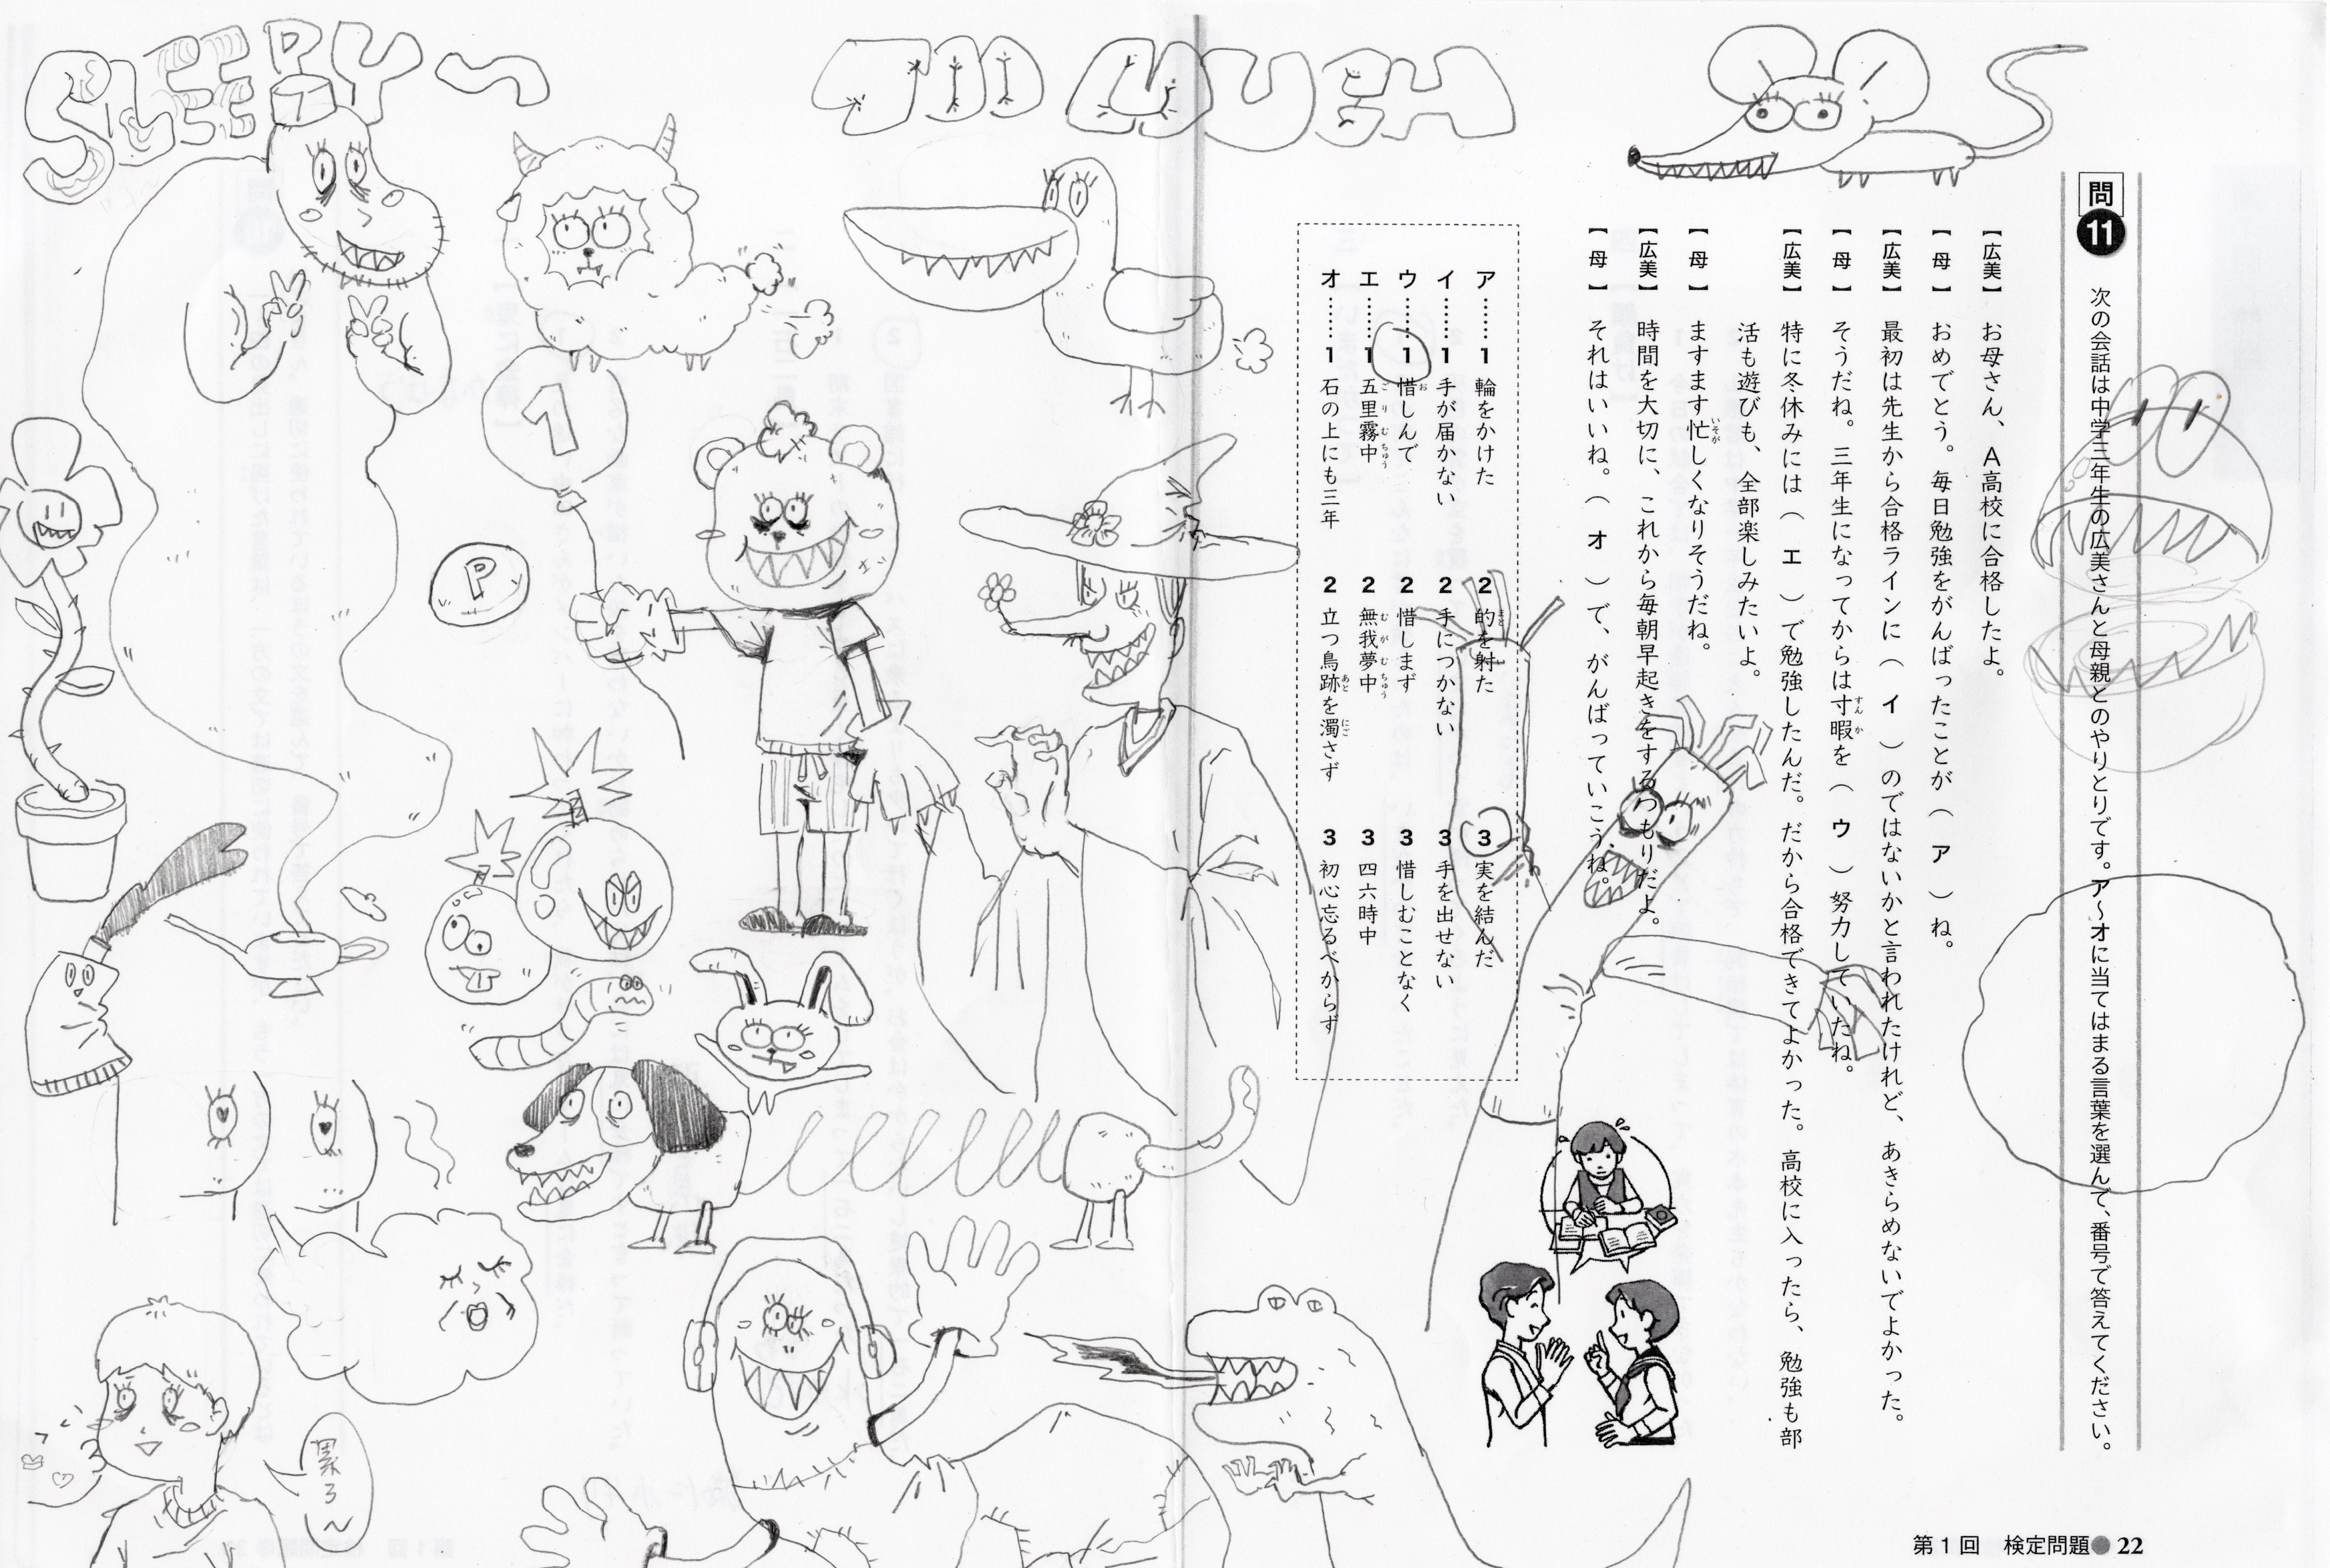 SLEEPY~
TOO MUCH
問11
次の会話は中学三年生の広美さんと母親とのやりとりです。ア~オに当てはまる言葉を選んで、番号で答えてください。
【広美】お母さん、A高校に合格したよ。
【母】おめでとう。毎日勉強をがんばったことが(ア)ね。
【広美】最初は先生から合格ラインに(イ)のではないかと言われたけれど、あきらめないでよかった。
【母】そうだね。三年生になってからは寸暇すんかを(ウ)努力していたね。
【広美】特に冬休みには(エ)で勉強したんだ。だから合格できてよかった。高校に入ったら、勉強も部
活も遊びも、全部楽しみたいよ。
【母】ますます忙いそがしくなりそうだね。
【広美】時間を大切に、これから毎朝早起きをするつもりだよ。
【母】それはいいね。(オ)で、がんばっていこうね。
ア……1 輪をかけた 2 的まとを射いた 3 実を結んだ
イ……1 手が届かない 2 手につかない 3 手を出せない
ウ……1 惜おしんで 2 惜しまず 3 惜しむことなく
エ……1 五里霧中ごりむちゅう 2 無我夢中むがむちゅう 3 四六時中
オ……1 石の上にも三年 2 立つ鳥跡あとを濁にごさず 3 初心忘るべからず
1
P
累了~
第1回 検定問題●22